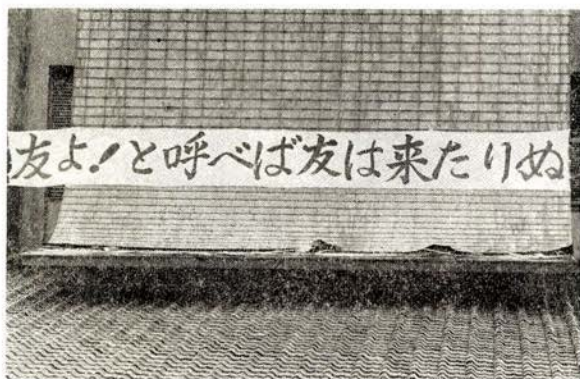 友よ!と呼べば友は来たりぬ